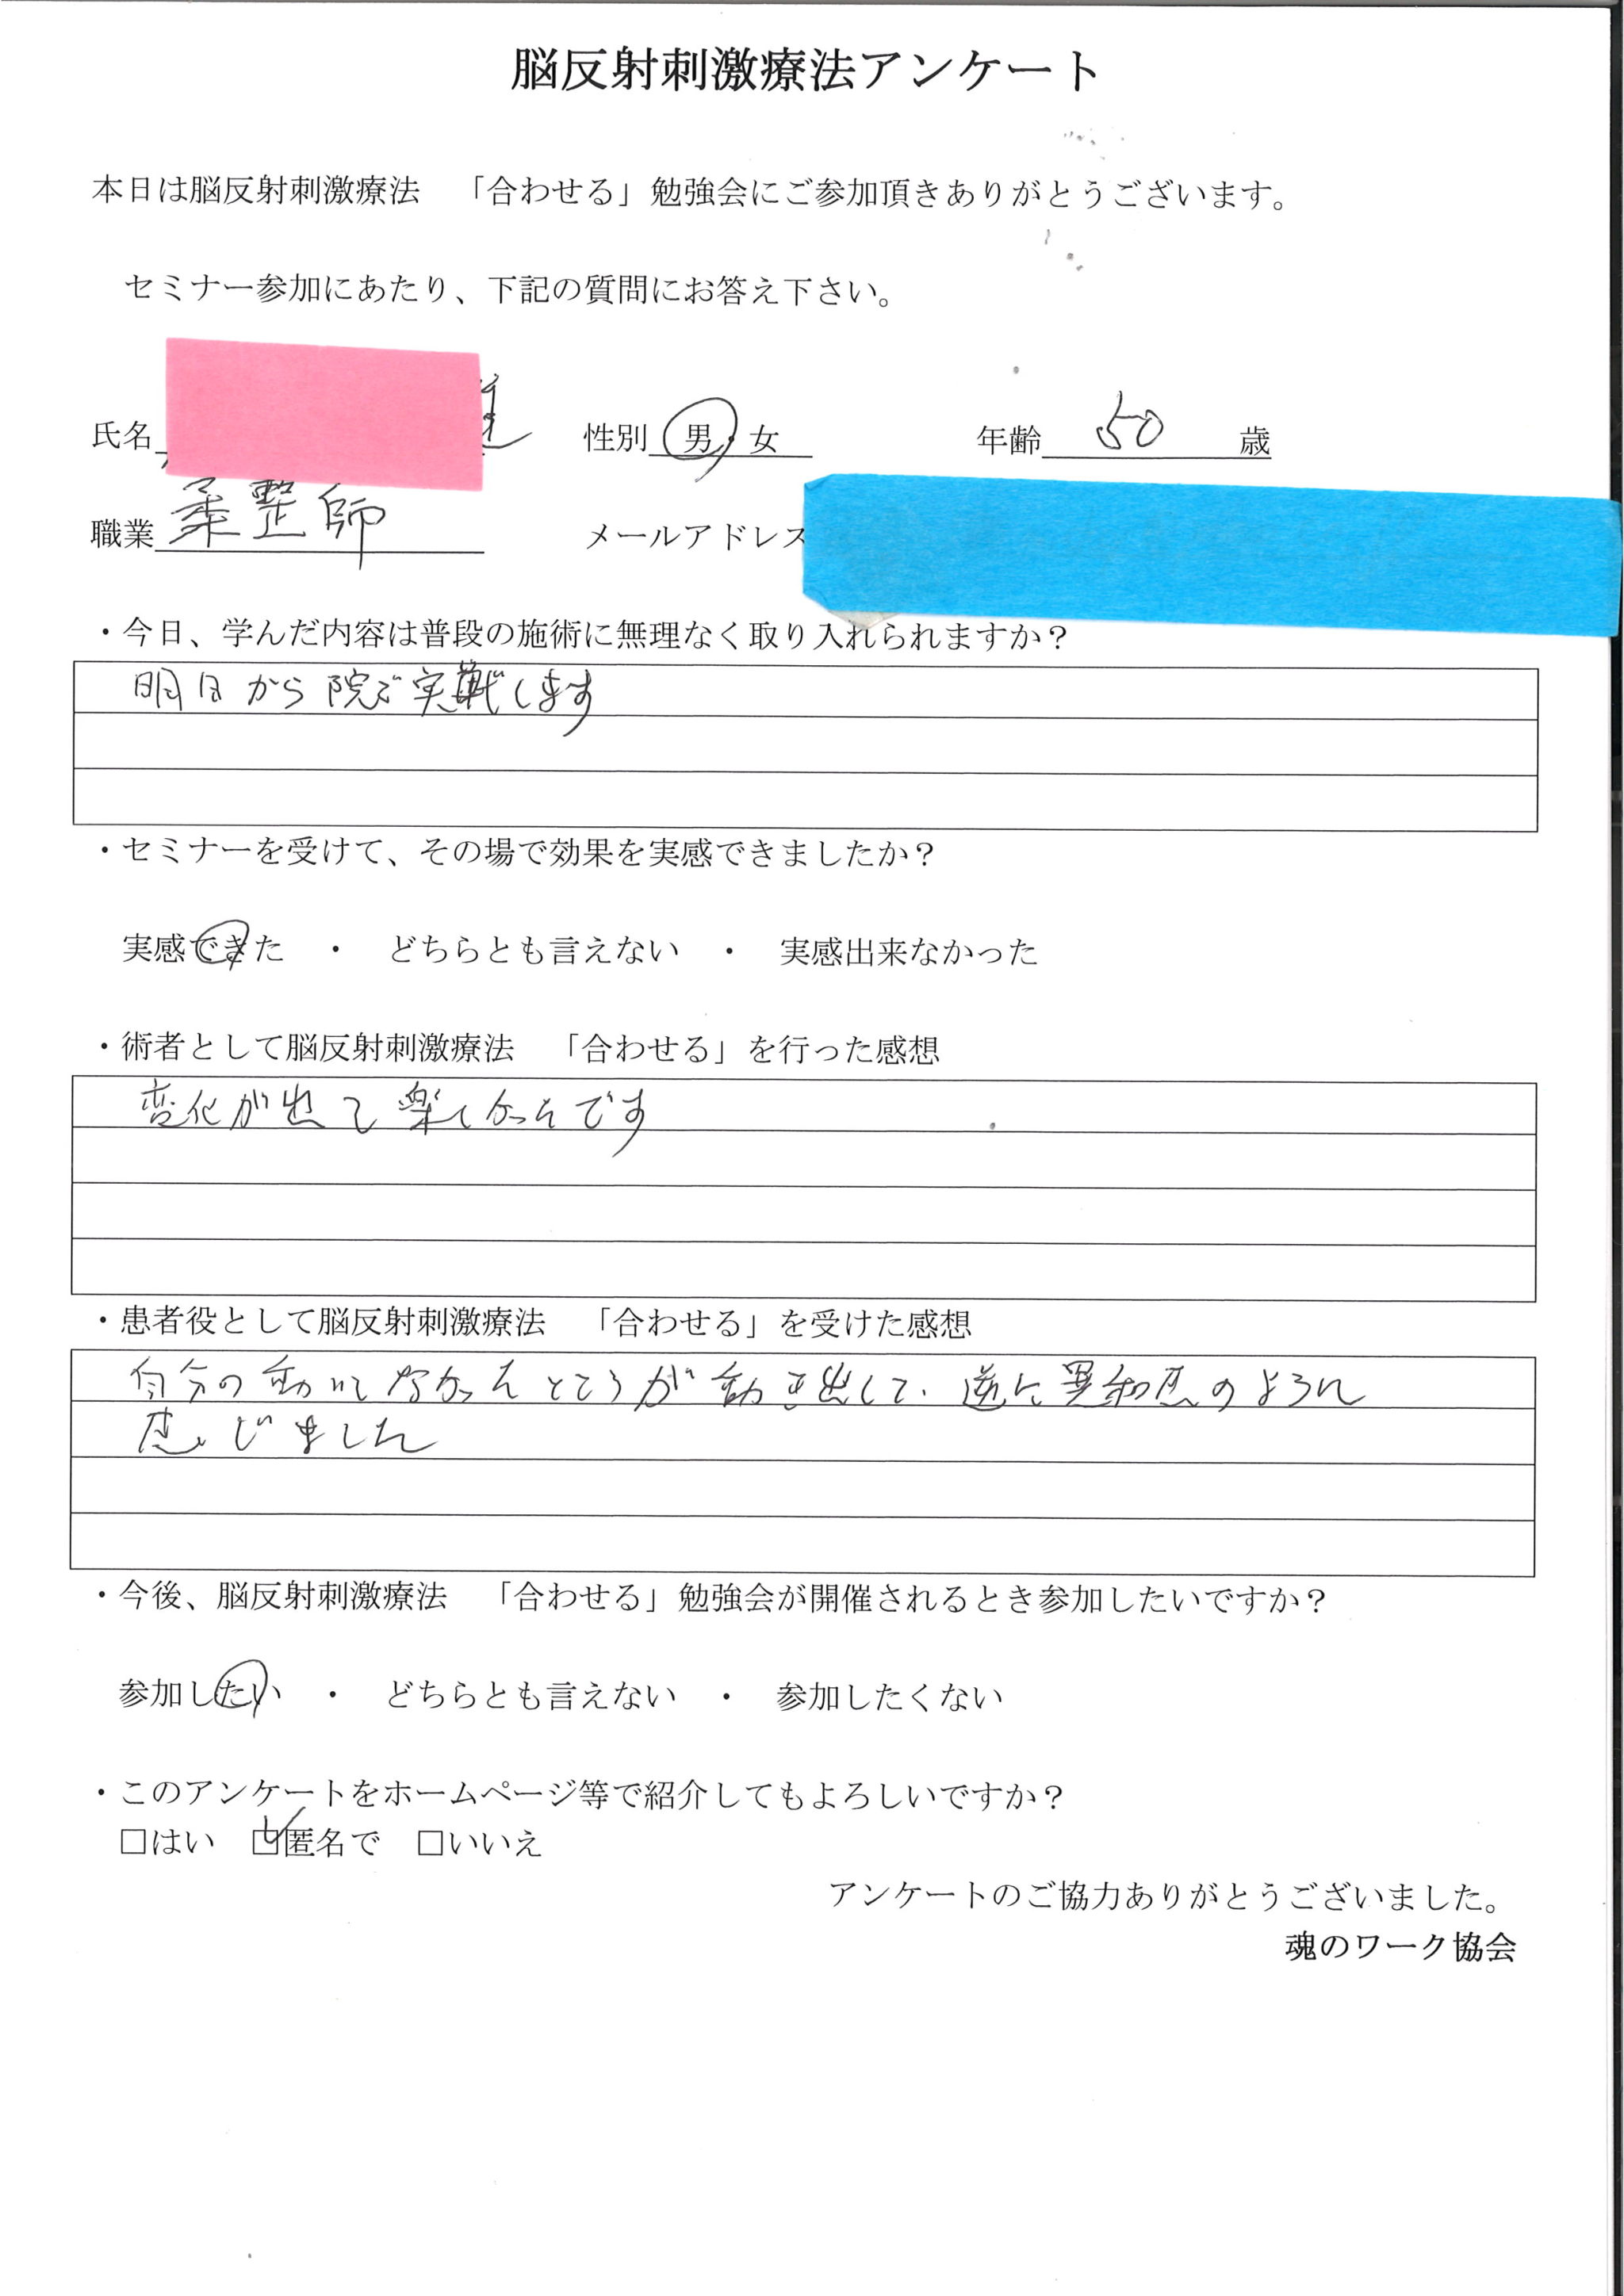 脳反射刺激療法アンケート
本日は脳反射刺激療法　「合わせる」勉強会にご参加頂きありがとうございます。
セミナー参加にあたり、下記の質問にお答え下さい。
氏名 性別 男・女 年齢 50 歳
職業 柔整師 メールアドレス
・今日、学んだ内容は普段の施術に無理なく取り入れられますか？
明日から院で実戦します
・セミナーを受けて、その場で効果を実感できましたか？
実感できた　・　どちらとも言えない　・　実感出来なかった
・術者として脳反射刺激療法　「合わせる」を行った感想
変化が出て楽しかったです
・患者役として脳反射刺激療法　「合わせる」を受けた感想
自分の動いてなかったところが動き出して、逆に異和感のように
感じました
・今後、脳反射刺激療法　「合わせる」勉強会が開催されるとき参加したいですか？
参加したい　・　どちらとも言えない　・　参加したくない
・このアンケートをホームページ等で紹介してもよろしいですか？
□はい　☑匿名で　□いいえ
アンケートのご協力ありがとうございました。
魂のワーク協会